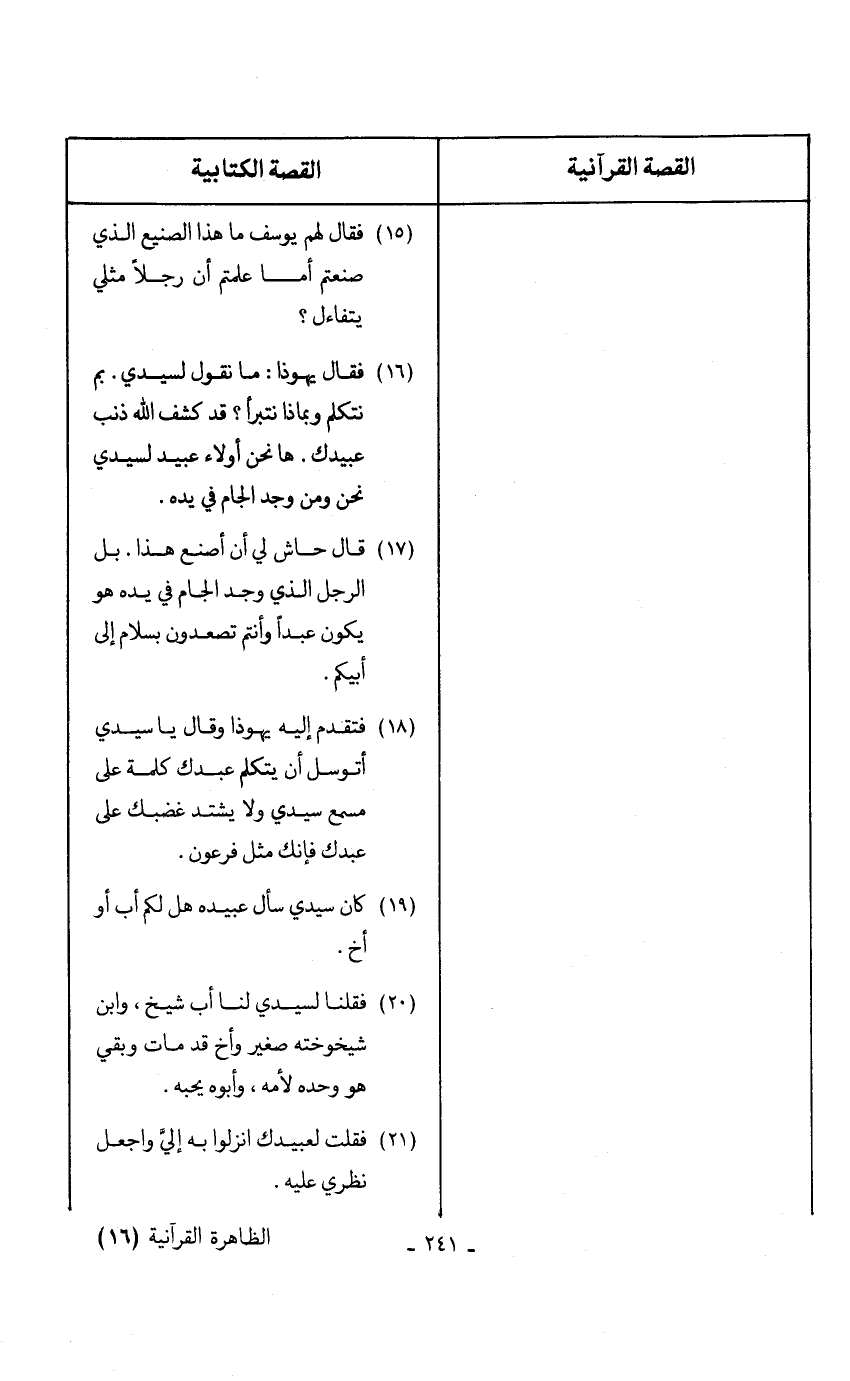 القصة القرآنية
القصة الكتابية
(١٥) فقال لهم يوسف ما هذا الصنيع الذي
صنعتم أما علمتم أن رجلاً مثلي
يتفاءل ؟
(١٦) فقال يهوذا : ما نقول لسيدي . بم
نتكلم وبماذا نتبرأ ؟ قد كشف الله ذنب
عبيدك . ها نحن أولاء عبيد لسيدي
نحن ومن وجد الجام في يده .
(١٧) قال حاش لي أن أصنع هذا . بل
الرجل الذي وجد الجام في يده هو
يكون عبداً وأنتم تصعدون بسلام إلى
أبيكم .
(١٨) فتقدم إليه يهوذا وقال يا سيدي
أتوسل أن يتكلم عبدك كلمة على
مسمع سيدي ولا يشتد غضبك على
عبدك فإنك مثل فرعون .
(١٩) كان سيدي سأل عبيده هل لكم أب أو
أخ .
(٢٠) فقلنا لسيدي لنا أب شيخ ، وابن
شيخوخته صغير وأخ قد مات وبقي
هو وحده لأمه ، وأبوه يحبه .
(٢١) فقلت لعبيدك انزلوا به إليَّ واجعل
نظري عليه .
- ٢٤١ -
الظاهرة القرآنية (١٦)